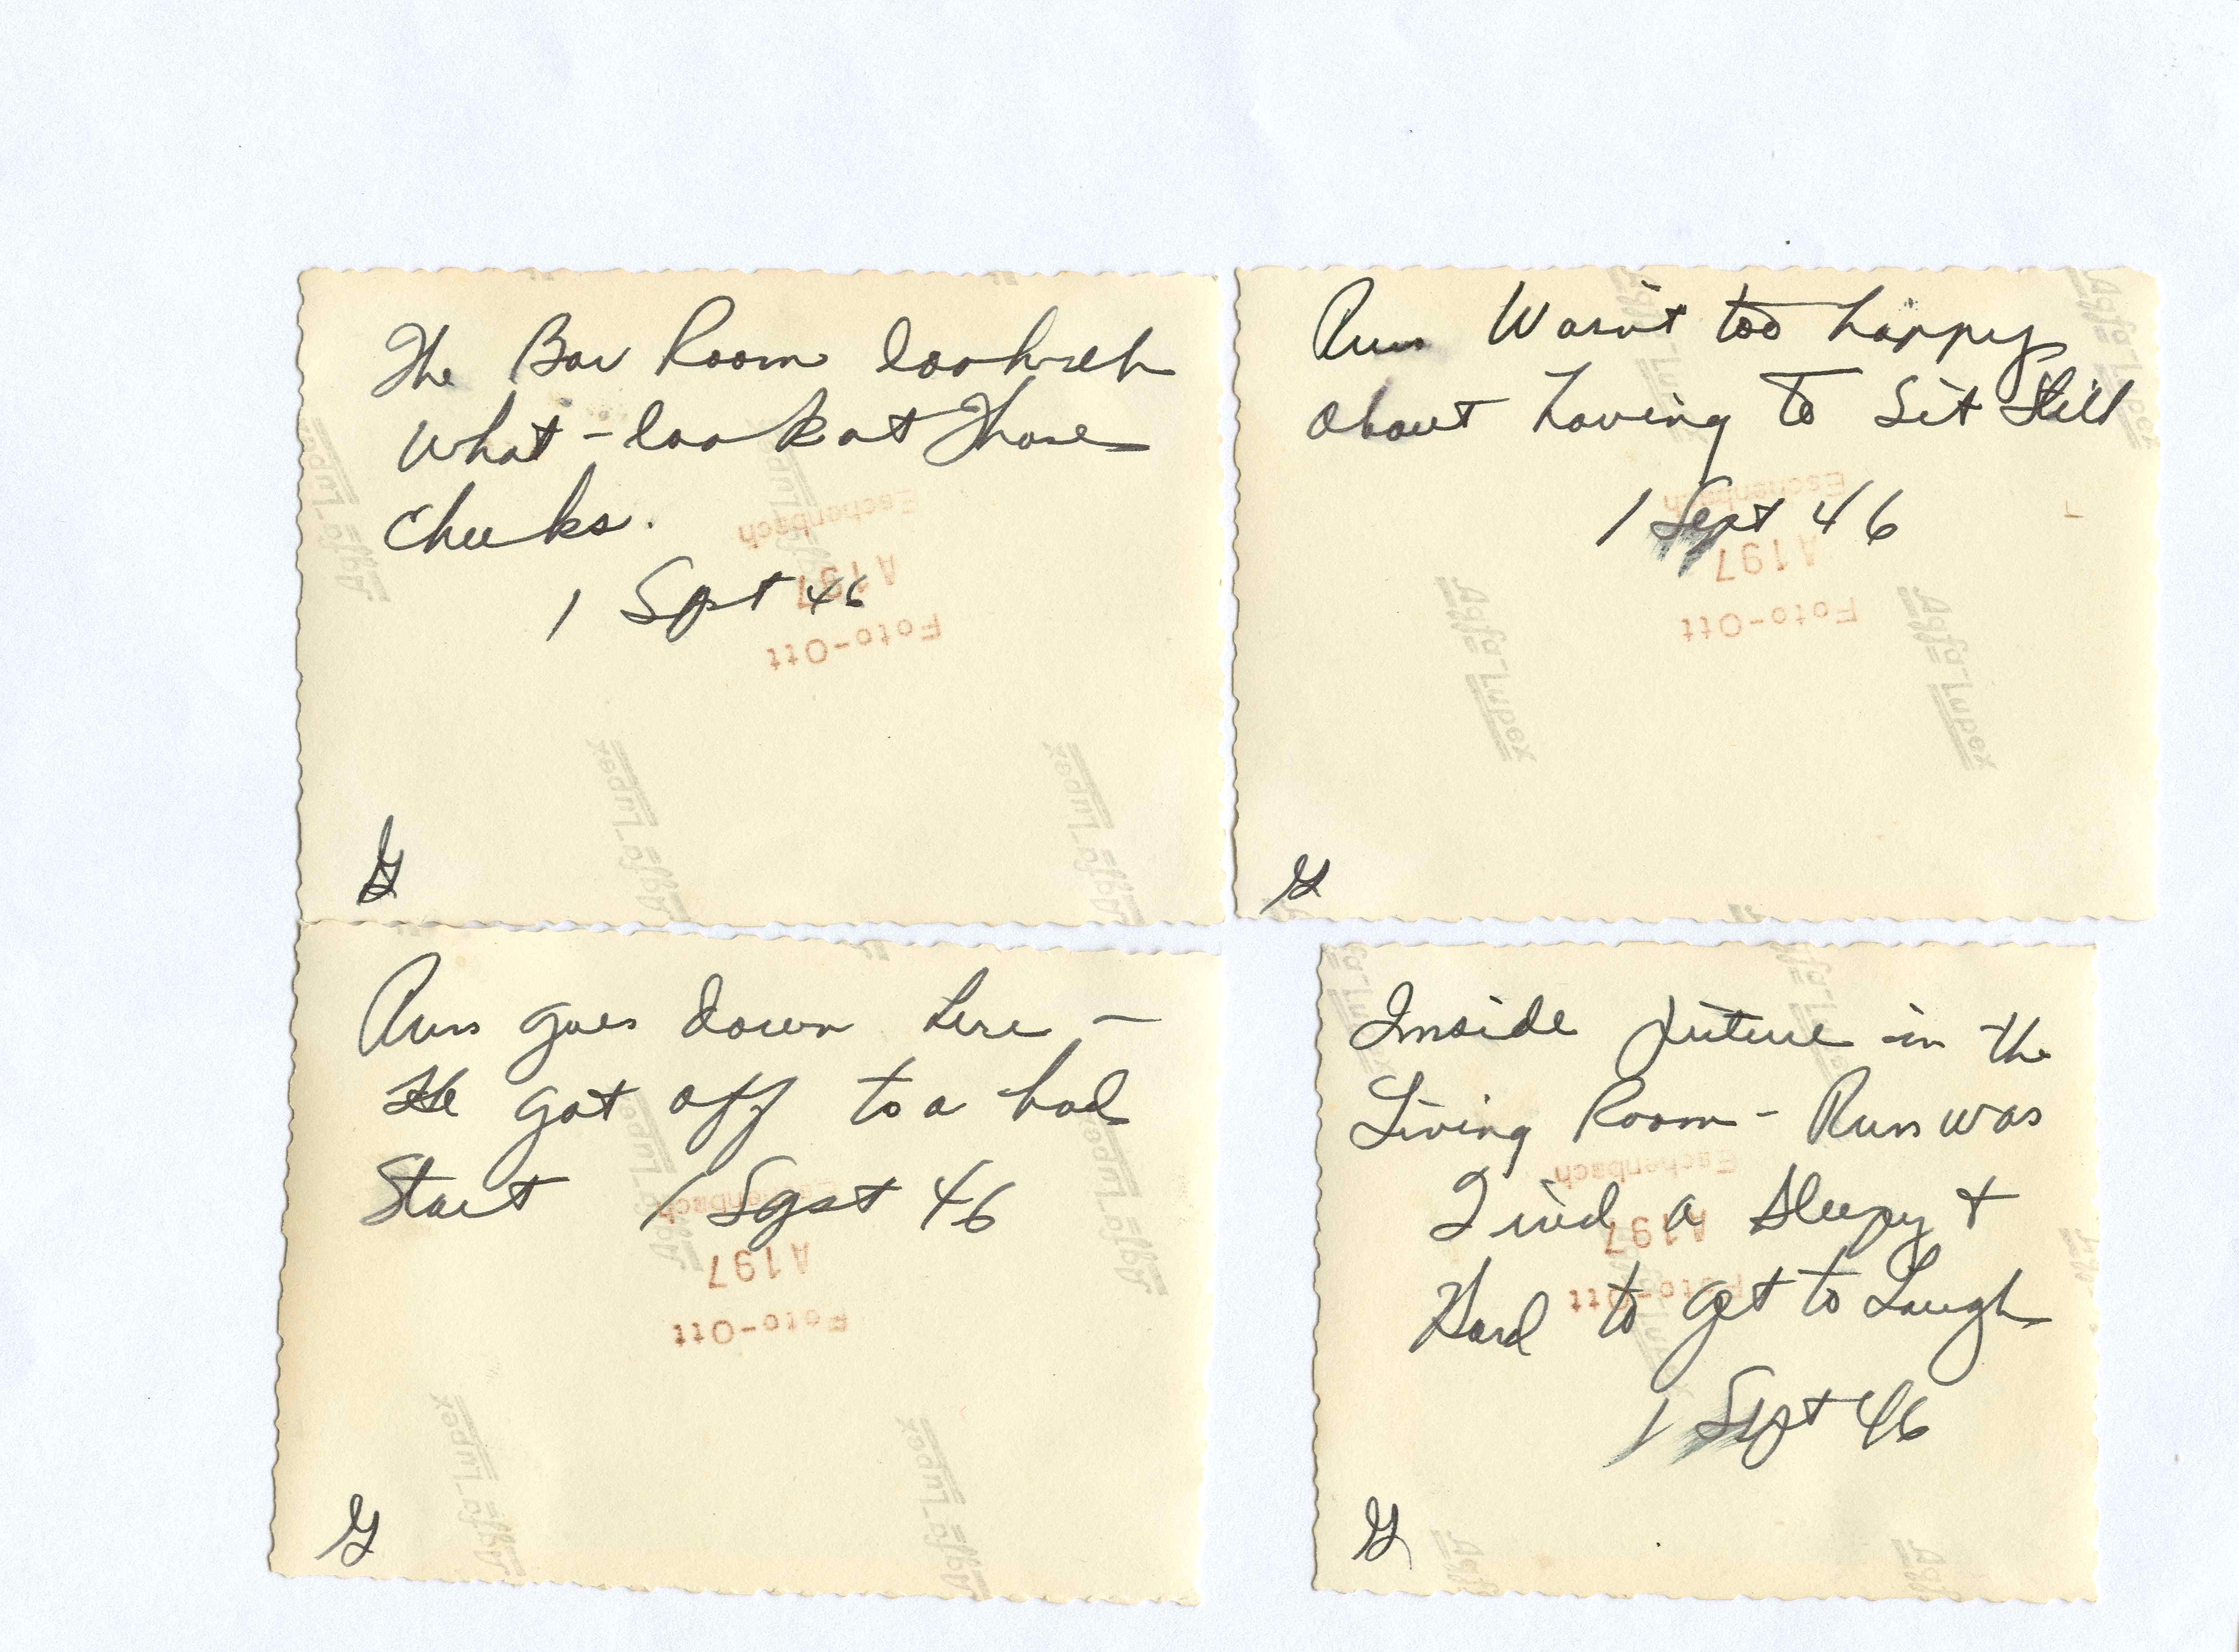 The Bar Room
What - look at Those
Cheeks.
1 Spt 46
Eschenbach
A197
Foto-Ott
Agfa-Lupex
G
Russ Wasn't too happy
about having to Sit Still
1 Sept 46
Eschenbach
A197
Foto-Ott
Agfa-Lupex
G
Russ goes down here -
He got off to a bad
Start 1 Sept 46
Eschenbach
A197
Foto-Ott
Agfa-Lupex
G
Inside picture in the
Living Room - Russ was
Tired a Sleepy +
Hard to get to Laugh
1 Sept 46
Eschenbach
A197
Foto-Ott
Agfa-Lupex
G